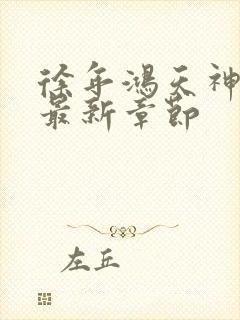 徐年鴻天神
最新章節
左丘